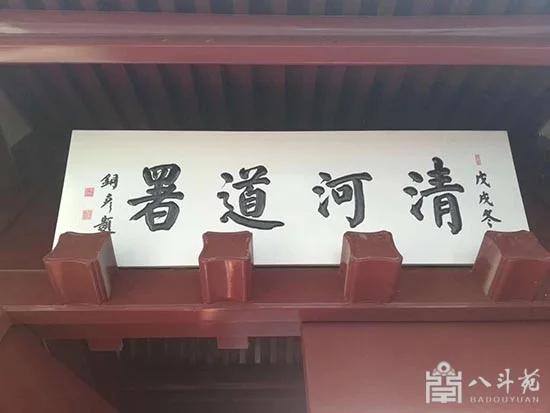 戊戌冬
清河道署
題
八斗苑
BADOUYUAN